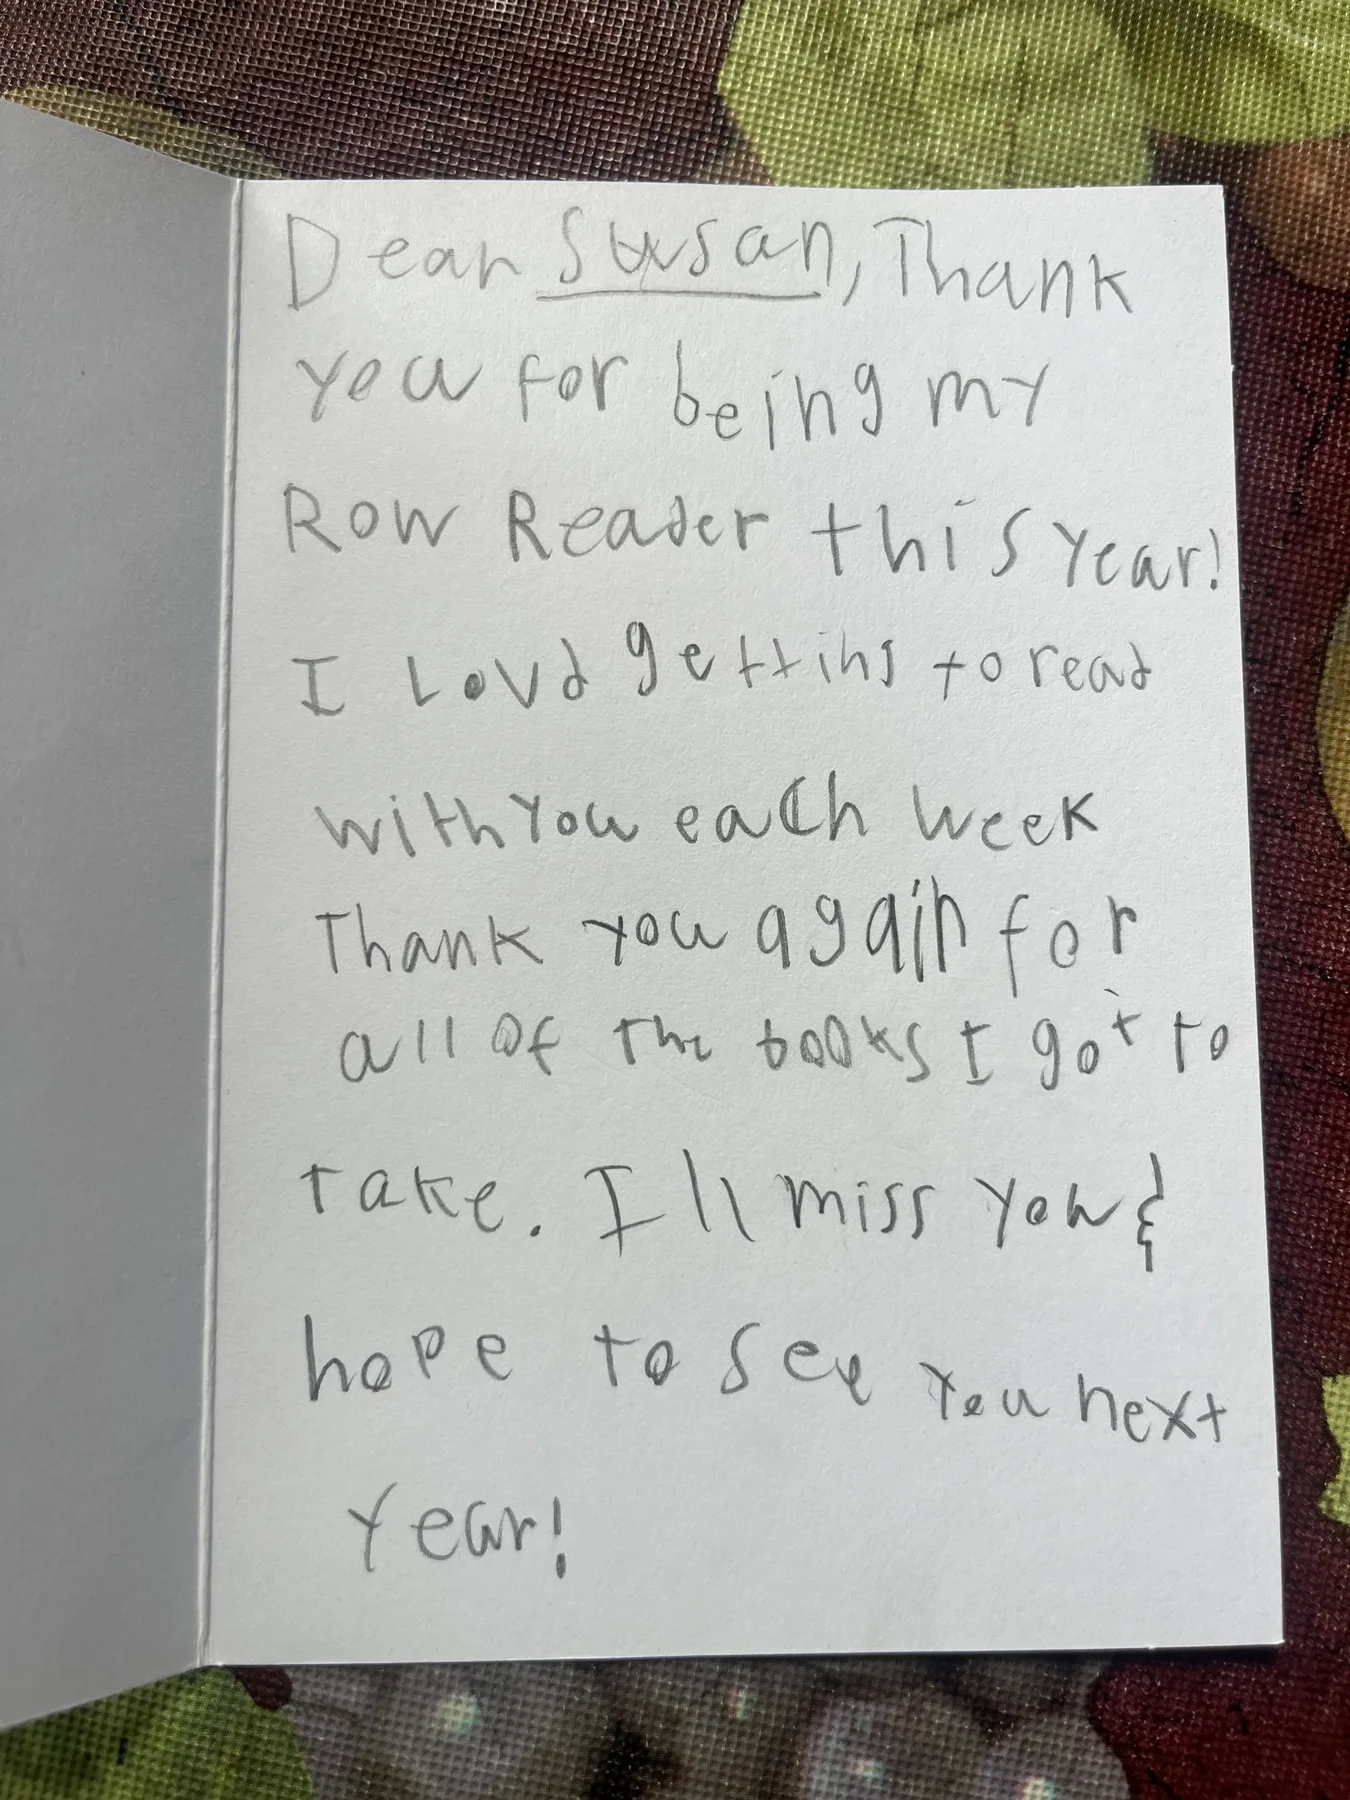 Dear Susan, Thank
you for being my
Row Reader this year!
I Lovd getting to read
with you each week
Thank you again for
all of the books I got to
take. I'll miss you &
hope to see you next
year!